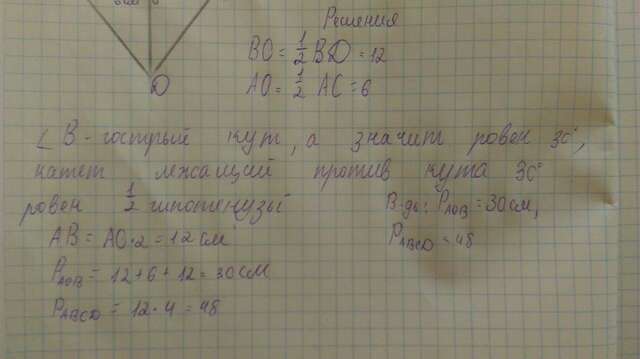 D
Решения
BO = 1/2 BD = 12
AO = 1/2 AC = 6
∠ B - гострый кут, а значит ровен 30°,
катет лежащий против кута 30°
ровен 1/2 гипотенузы
AB = AO · 2 = 12 см
P AOB = 12 + 6 + 12 = 30 см
P ABCD = 12 · 4 = 48
В-дь: P AOB = 30 см,
P ABCD = 48